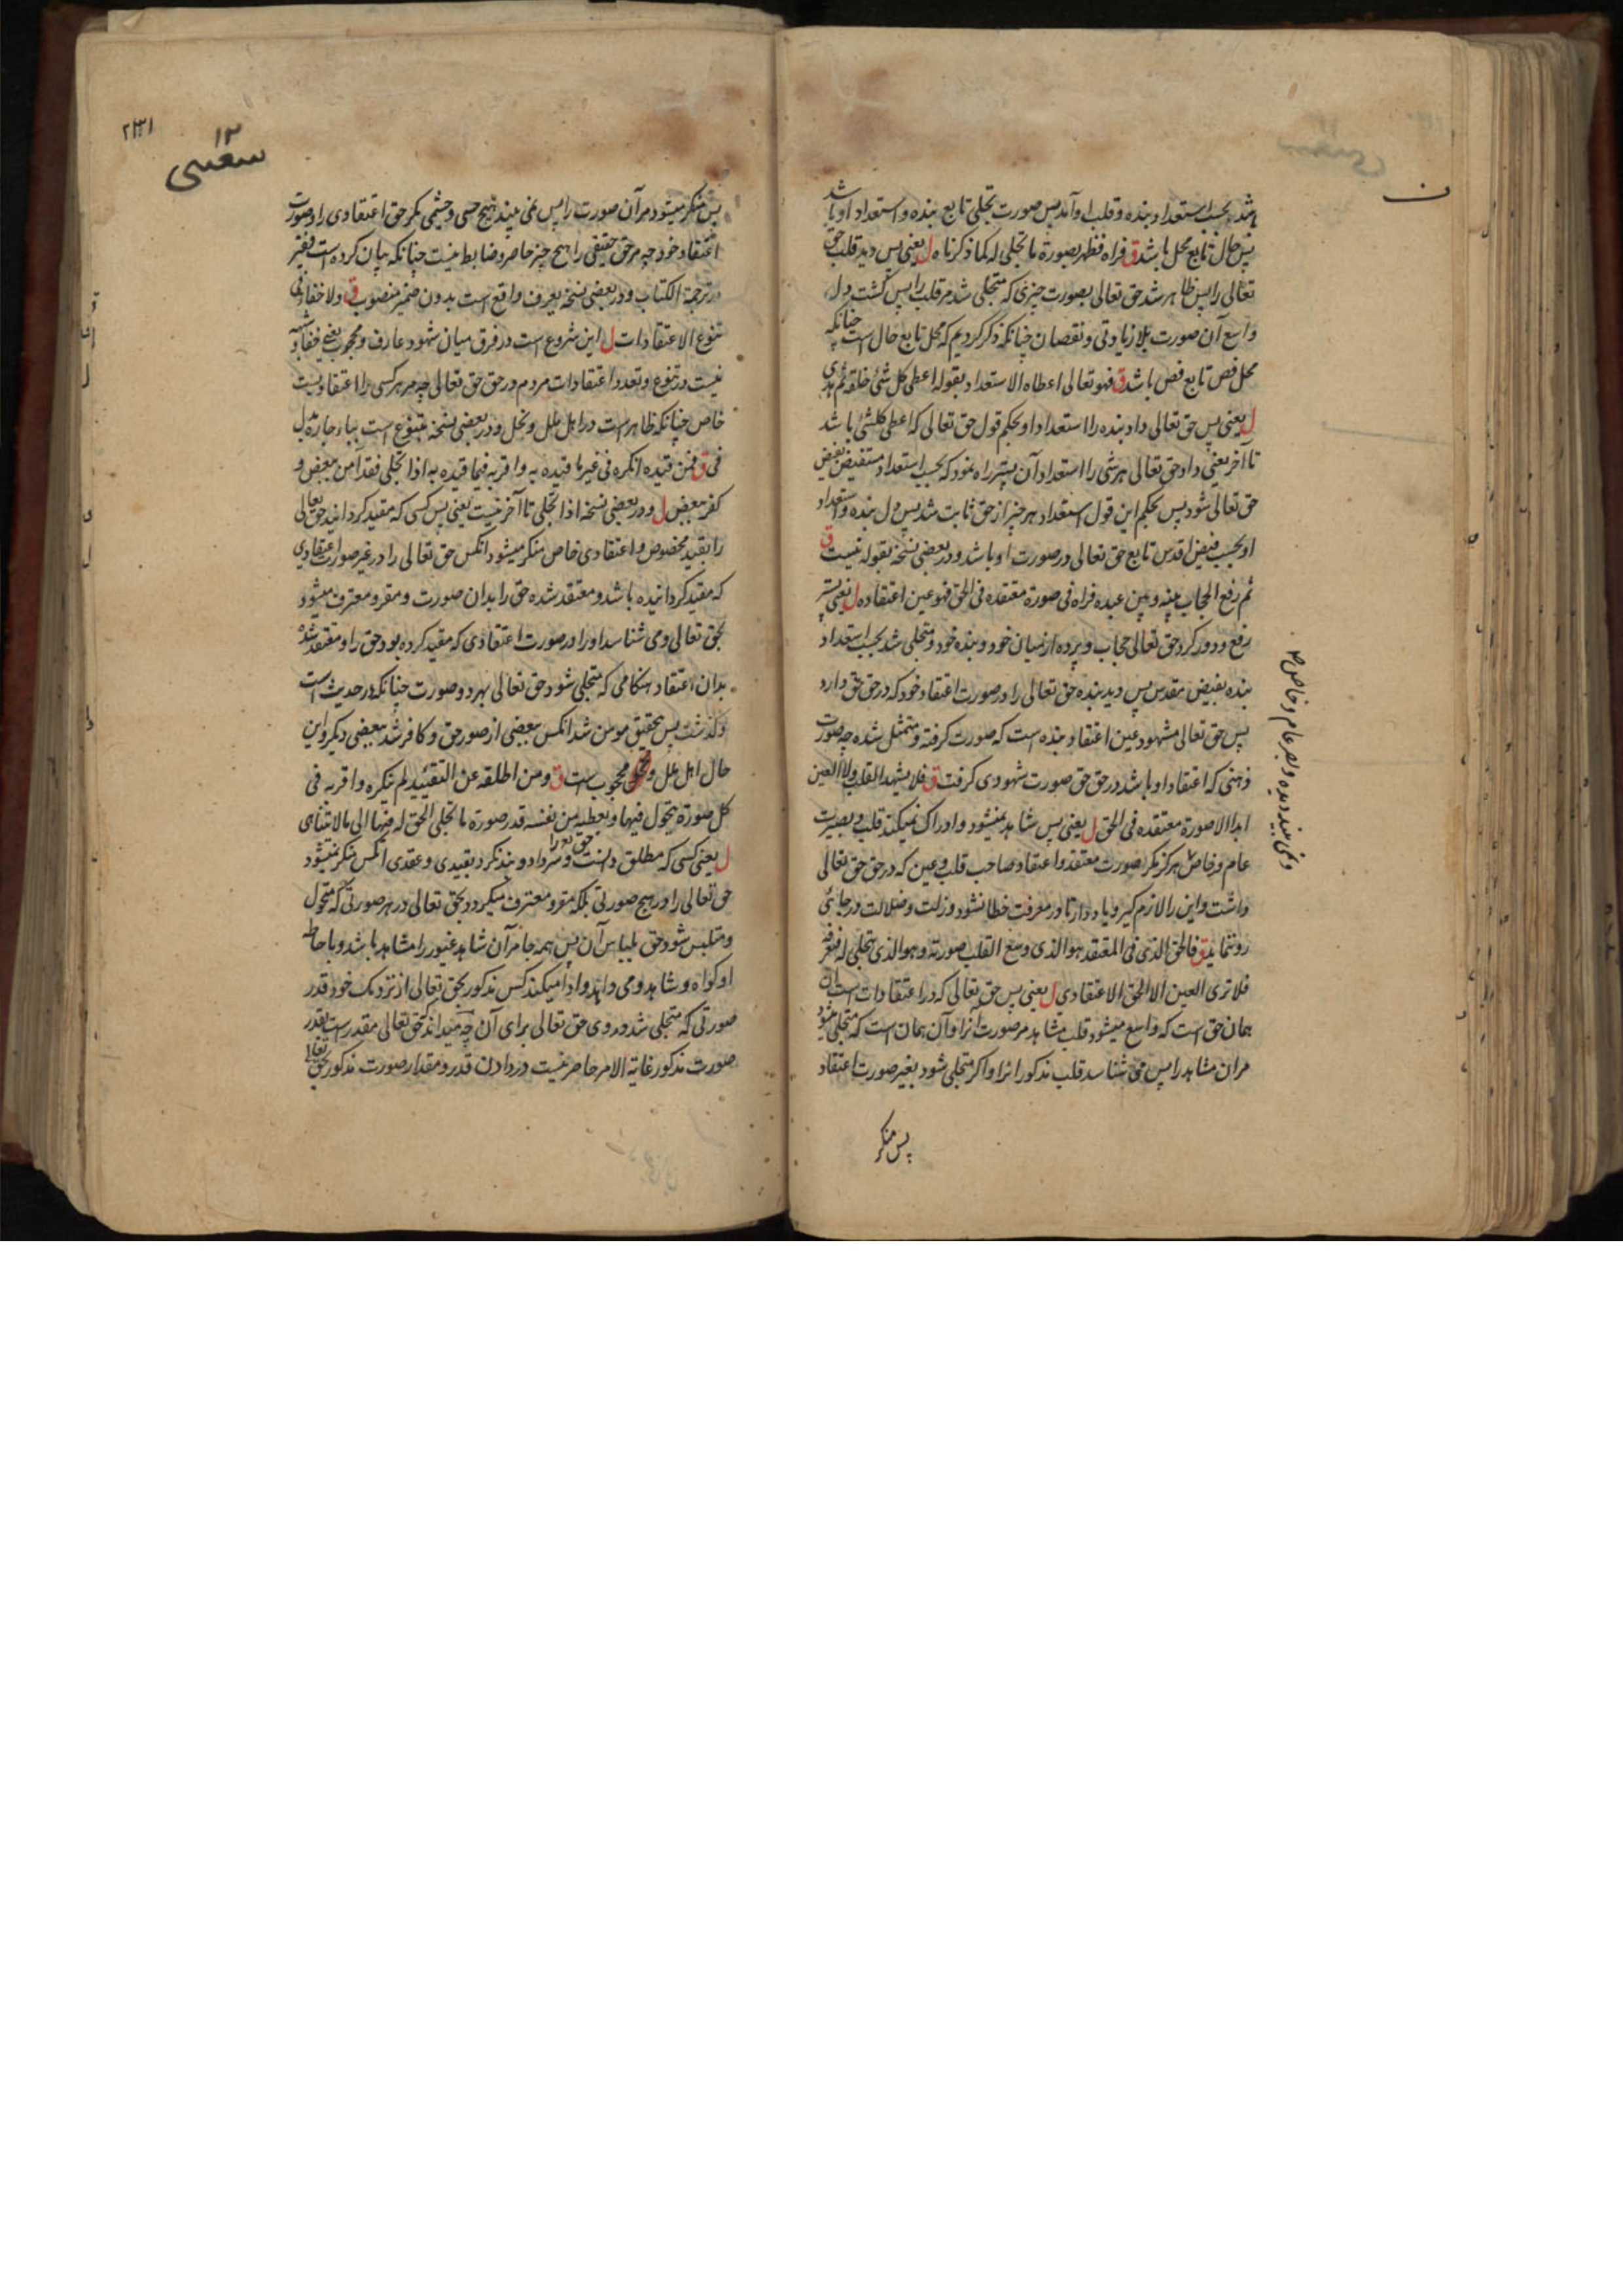 شد بحسب استعداد بنده و قلب او آمد پس صورت تجلی تابع بنده و استعداد او باشد
پس حال تابع محل باشد ق فراه فظهر بصورة ما تجلی له کما ذکرناه ل یعنی پس دید قلب حق
تعالی را پس ظاهر شد حق تعالی بصورت چیزی که متجلی شد مر قلب را پس کشت دل
واسع آن صورت بلا زیادتی و نقصان چنانکه ذکر کردیم که محل تابع حال است چنانکه
محل فص تابع فص باشد ق فهو تعالی اعطاه الاستعداد بقوله اعطی کل شئ خلقه ثم هدی
ل یعنی پس حق تعالی داد بنده را استعداد او بحکم قول حق تعالی که اعطی کلشئ باشد
تا آخر یعنی داد حق تعالی هر شی را استعداد آن پستر راه نمود که بحسب استعداد مستفیض بفیض
حق تعالی شود پس بحکم این قول استعداد هر چیز از حق ثابت شد پس دل بنده و استعداد
او بحسب فیض اقدس تابع حق تعالی در صورت او باشد و در بعضی نسخه بقوله نیست ق
ثم رفع الحجاب بینه و بین عبده فراه فی صورة معتقده فی الحق فهو عین اعتقاده ل یعنی پستر
رفع و دور کرد حق تعالی حجاب و پرده از میان خود و بنده خود و متجلی شد بحسب استعداد
بنده بفیض مقدس پس دید بنده حق تعالی را در صورت اعتقاد خود که در حق حق دارد
پس حق تعالی مشهود عین اعتقاد بنده است که صورت کرفته و متمثل شده چه صورت
ذهنی که اعتقاد او باشد در حق حق صورت شهودی کرفت ق فلا یشهد القلب ولا العین
ابدا الا صورة معتقده فی الحق ل یعنی پس شاهد نمیشود و ادراک نمیکند قلب و بصیرت
عام و خاص هرکز مکر صورت معتقد و اعتقاد صاحب قلب و عین که در حق حق تعالی
داشت و این را لازم کیر و یاد دار تا در معرفت خطا نشود و زلت و ضلالت در جائی
رو ننماید ق فالحق الذی فی المعتقد هو الذی وسع القلب صورته و هو الذی یتجلی له فیعرفه
فلا تری العین الا الحق الاعتقادی ل یعنی پس حق تعالی که در اعتقادات است آن
همان حق است که واسع میشود قلب مشاهد مر صورت آنرا و آن همان است که متجلی میشود
مر آن مشاهد را پس می شناسد قلب مذکور انرا و اکر متجلی شود بغیر صورت اعتقاد
پس منکر
و نمی بیند دیده و بصر عام و خاص
۲۳۱
۱۲
پس منکر میشود مر آن صورت را پس نمی بیند هیچ حسی و چشمی مکر حق اعتقادی را و صورت
اعتقاد خود چه مر حق حقیقی را هیچ چیز حاصر و ضابط نیست چنانکه بیان کرده است فقیر
در ترجمة الکتاب و در بعضی نسخه یعرف واقع است بدون ضمیر منصوب ق ولا خفاء فی
تنوع الاعتقادات ل این شروع است در فرق میان شهود عارف و محجوب یعنی خفا و شبهه
نیست در تنوع و تعدد اعتقادات مردم در حق حق تعالی چه مر هر کسی را اعتقادیست
خاص چنانکه ظاهر است در اهل ملل و نحل و در بعضی نسخه بتنوع است بباء جاره بدل
فی ق فمن قیده انکره فی غیر ما قیده به و اقر به فیما قیده به اذا تجلی فقد آمن ببعض و
کفر ببعض ل و در بعضی نسخه اذا تجلی تا آخر نیست یعنی پس کسی که مقید کردانید حق تعالی
را بقید مخصوص و اعتقادی خاص منکر میشود انکس حق تعالی را در غیر صورت اعتقادی
که مقید کردانیده باشد و معتقد شده حق را بدان صورت و مقر و معترف میشود
بحق تعالی و می شناسد او را در صورت اعتقادی که مقید کرده بود حق را و معتقد شده
بدان اعتقاد هنکامی که متجلی شود حق تعالی بهر دو صورت چنانکه در حدیث است
و کذشت پس بتحقیق مومن شد انکس ببعضی از صور حق و کافر شد ببعضی دیکر و این
حال اهل ملل و محجوب است ق و من اطلقه عن التقیید لم ینکره و اقر به فی
کل صورة یتحول فیها و یعطیه من نفسه قدر صورة ما تجلی الحق له فیها الی ما لا یتناهی
ل یعنی کسی که مطلق دانست و سر داد و بند نکرد بقیدی و عقدی انکس منکر نمیشود
حق تعالی را در هیچ صورتی بلکه مقر و معترف میکردد بحق تعالی در هر صورتی که متحول
و متلبس شود حق بلباس آن پس همه جا مر آن شاهد غیور را مشاهد باشد و باحاطه
او کواه و شاهد و می داند و ادا میکند کس مذکور بحق تعالی از نزدیک خود قدر
صورتی که متجلی شد در وی حق تعالی برای آن چه میداند که حق تعالی مقدر است بقدر
صورت مذکور غایة الامر حاصر نیست در دادن قدر و مقدار صورت مذکور بحق تعالی